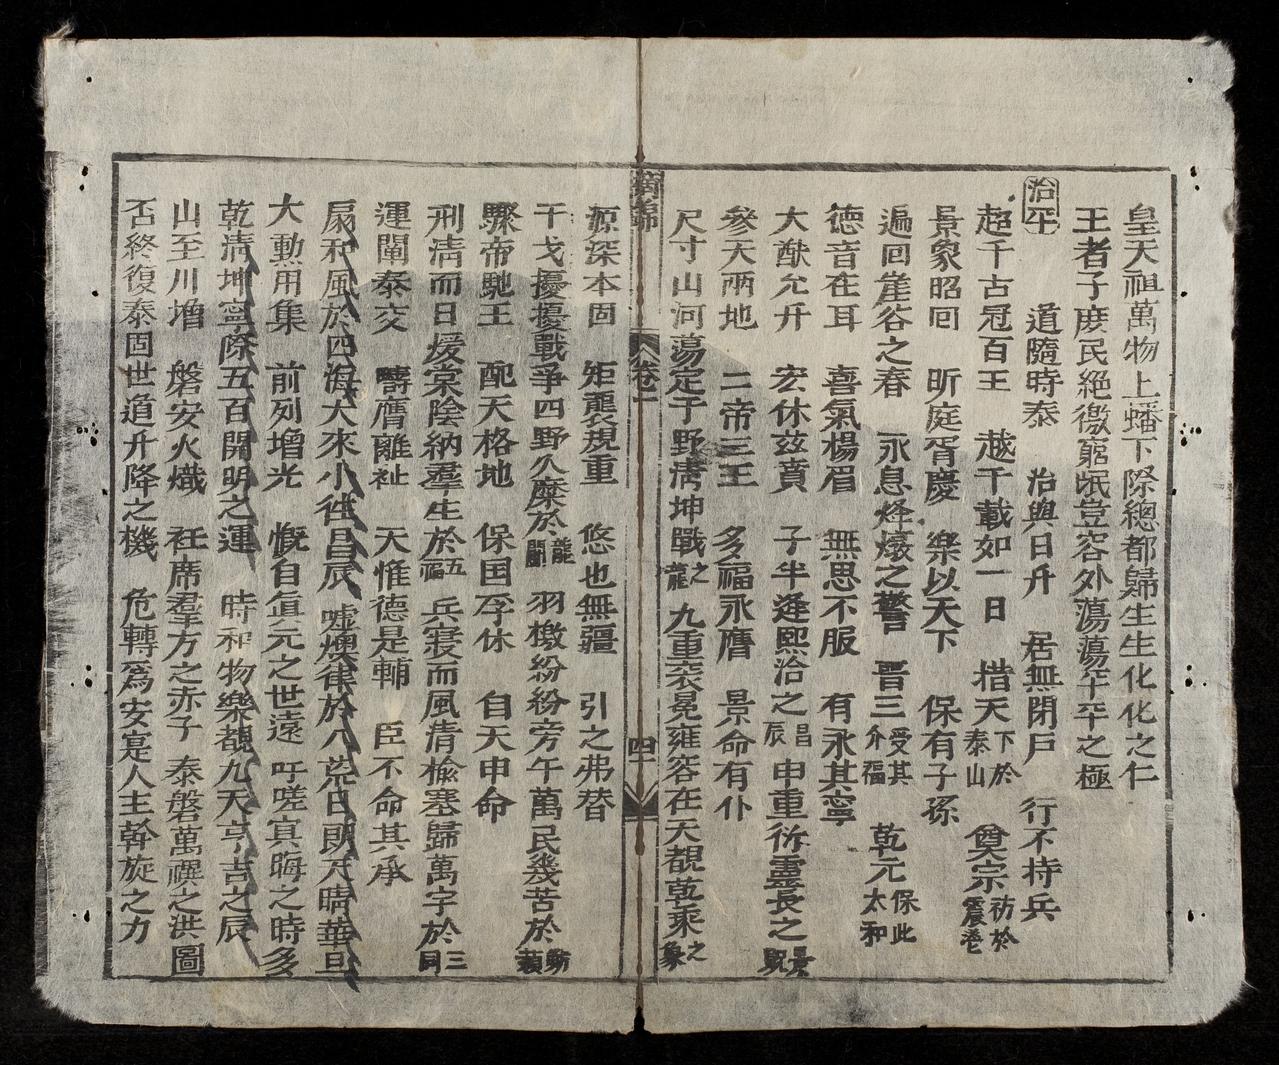 皇天祖萬物上蟠下際總都歸生生化化之仁
王者子庶民絶徼窮氓豈容外蕩蕩平平之極
治平 道隨時泰 治與日升 居無閉戶 行不持兵
超千古冠百王 越千載如一日 措天下於泰山 奠宗祊於震卷
景象昭回 昕庭胥慶 樂以天下 保有子孫
遍回崖谷之春 永息烽燧之警 晋三受其介福 乾元保此太和
德音在耳 喜氣楊眉 無思不服 有永其寧
大猷允升 宏休茲賁 子半逢熙洽之昌辰 申重衍靈長之景貺
參天兩地 二帝三王 多福永膺 景命有仆
尺寸山河蕩定于野淸坤戰之龍 九重衮冕雍容在天覩乾乘之象
摘錦 卷二 四
源深本固 矩襲規重 悠也無疆 引之弗替
干戈擾擾戰爭四野久糜於龍鬪 羽檄紛紛旁午萬民幾苦於
驟帝馳王 配天格地 保国孚休 自天申命
刑淸而日煖棠陰納羣生於五福 兵寢而風清楡塞歸萬宇於三同
運闡泰交 疇膺離祉 天惟德是輔 臣不命其承
扇和風於四海大來小徃昌辰 嘘燠律於八荒日朗天晴華旦
大勳用集 前列增光 慨自眞元之世遠 吁嗟寘晦之時多
乾淸坤寧際五百開明之運 時和物樂覩九天亨吉之辰
山至川增 磐安火熾 衽席羣方之赤子 泰磐萬禩之洪圖
否終復泰固世道升降之機 危轉爲安寔人主斡旋之力